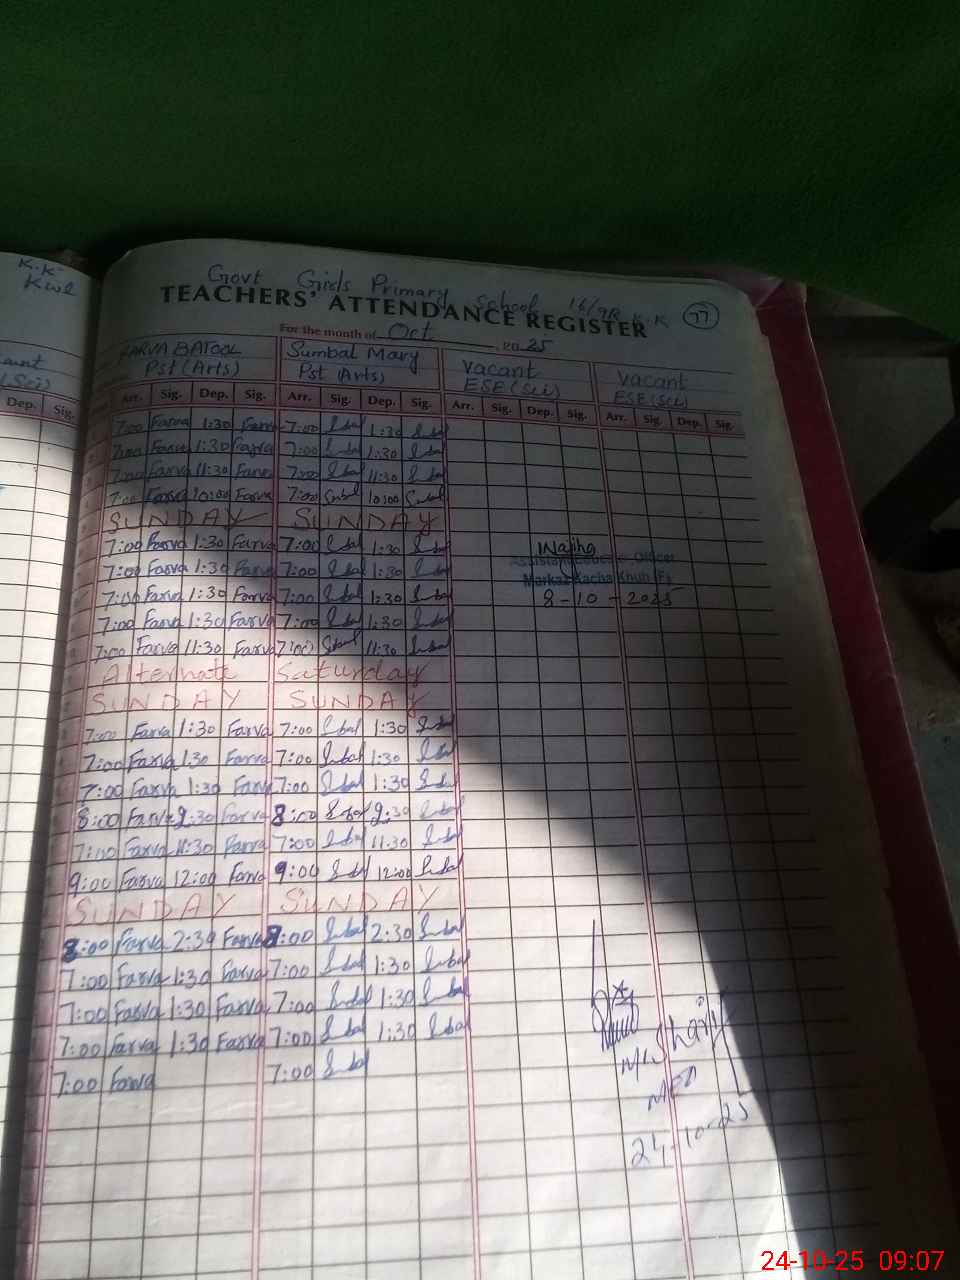 K.K
Kwl
Govt Girls Primary School 16/9R K.K
77
TEACHERS' ATTENDANCE REGISTER
For the month of Oct 20 25
FARVA BATOOL Sumbal Mary Vacant Vacant
Pst (Arts) Pst (Arts) ESE(Sci) ESE(Sci)
(Sci)
Dep. Sig. Arr. Sig. Dep. Sig. Arr. Sig. Dep. Sig. Arr. Sig. Dep. Sig. Arr. Sig. Dep. Sig.
7:00 Farva 1:30 Farva 7:00 Sumbal 1:30 Sumbal
7:00 Farva 1:30 Farva 7:00 Sumbal 1:30 Sumbal
7:00 Farva 11:30 Farva 7:00 Sumbal 11:30 Sumbal
7:00 Farva 10:00 Farva 7:00 Sumbal 10:00 Sumbal
SUNDAY SUNDAY
7:00 Farva 1:30 Farva 7:00 Sumbal 1:30 Sumbal
7:00 Farva 1:30 Farva 7:00 Sumbal 1:30 Sumbal
7:00 Farva 1:30 Farva 7:00 Sumbal 1:30 Sumbal
7:00 Farva 1:30 Farva 7:00 Sumbal 1:30 Sumbal
7:00 Farva 11:30 Farva 7:00 Sumbal 11:30 Sumbal
Alternate Saturday
SUNDAY SUNDAY
7:00 Farva 1:30 Farva 7:00 Sumbal 1:30 Sumbal
7:00 Farva 1:30 Farva 7:00 Sumbal 1:30 Sumbal
7:00 Farva 1:30 Farva 7:00 Sumbal 1:30 Sumbal
8:00 Farva 2:30 Farva 8:00 Sumbal 2:30 Sumbal
7:00 Farva 11:30 Farva 7:00 Sumbal 11:30 Sumbal
9:00 Farva 12:00 Farva 9:00 Sumbal 12:00 Sumbal
SUNDAY SUNDAY
8:00 Farva 2:30 Farva 8:00 Sumbal 2:30 Sumbal
7:00 Farva 1:30 Farva 7:00 Sumbal 1:30 Sumbal
7:00 Farva 1:30 Farva 7:00 Sumbal 1:30 Sumbal
7:00 Farva 1:30 Farva 7:00 Sumbal 1:30 Sumbal
7:00 Farva 7:00 Sumbal
Wajiha
Assistant Education Officer
Markaz Kacha Khuh (F)
8-10-2025
24-10-25
24-10-25 09:07